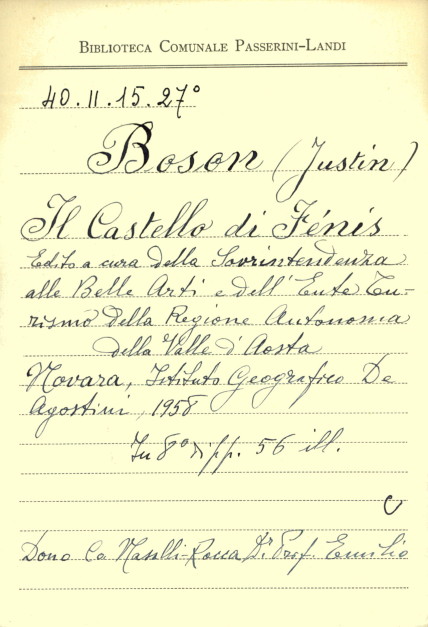 BIBLIOTECA COMUNALE PASSERINI-LANDI
40.II.15.27°
Boson (Justin)
Il Castello di Fénis
Edito a cura della Sovrintendenza
alle Belle Arti e dell'Ente Tu-
rismo della Regione Autonoma
della Valle d'Aosta
Novara, Istituto Geografico De
Agostini, 1958
In 8° di pp. 56 ill.
Dono Co Nasalli-Rocca Dr Prof. Emilio